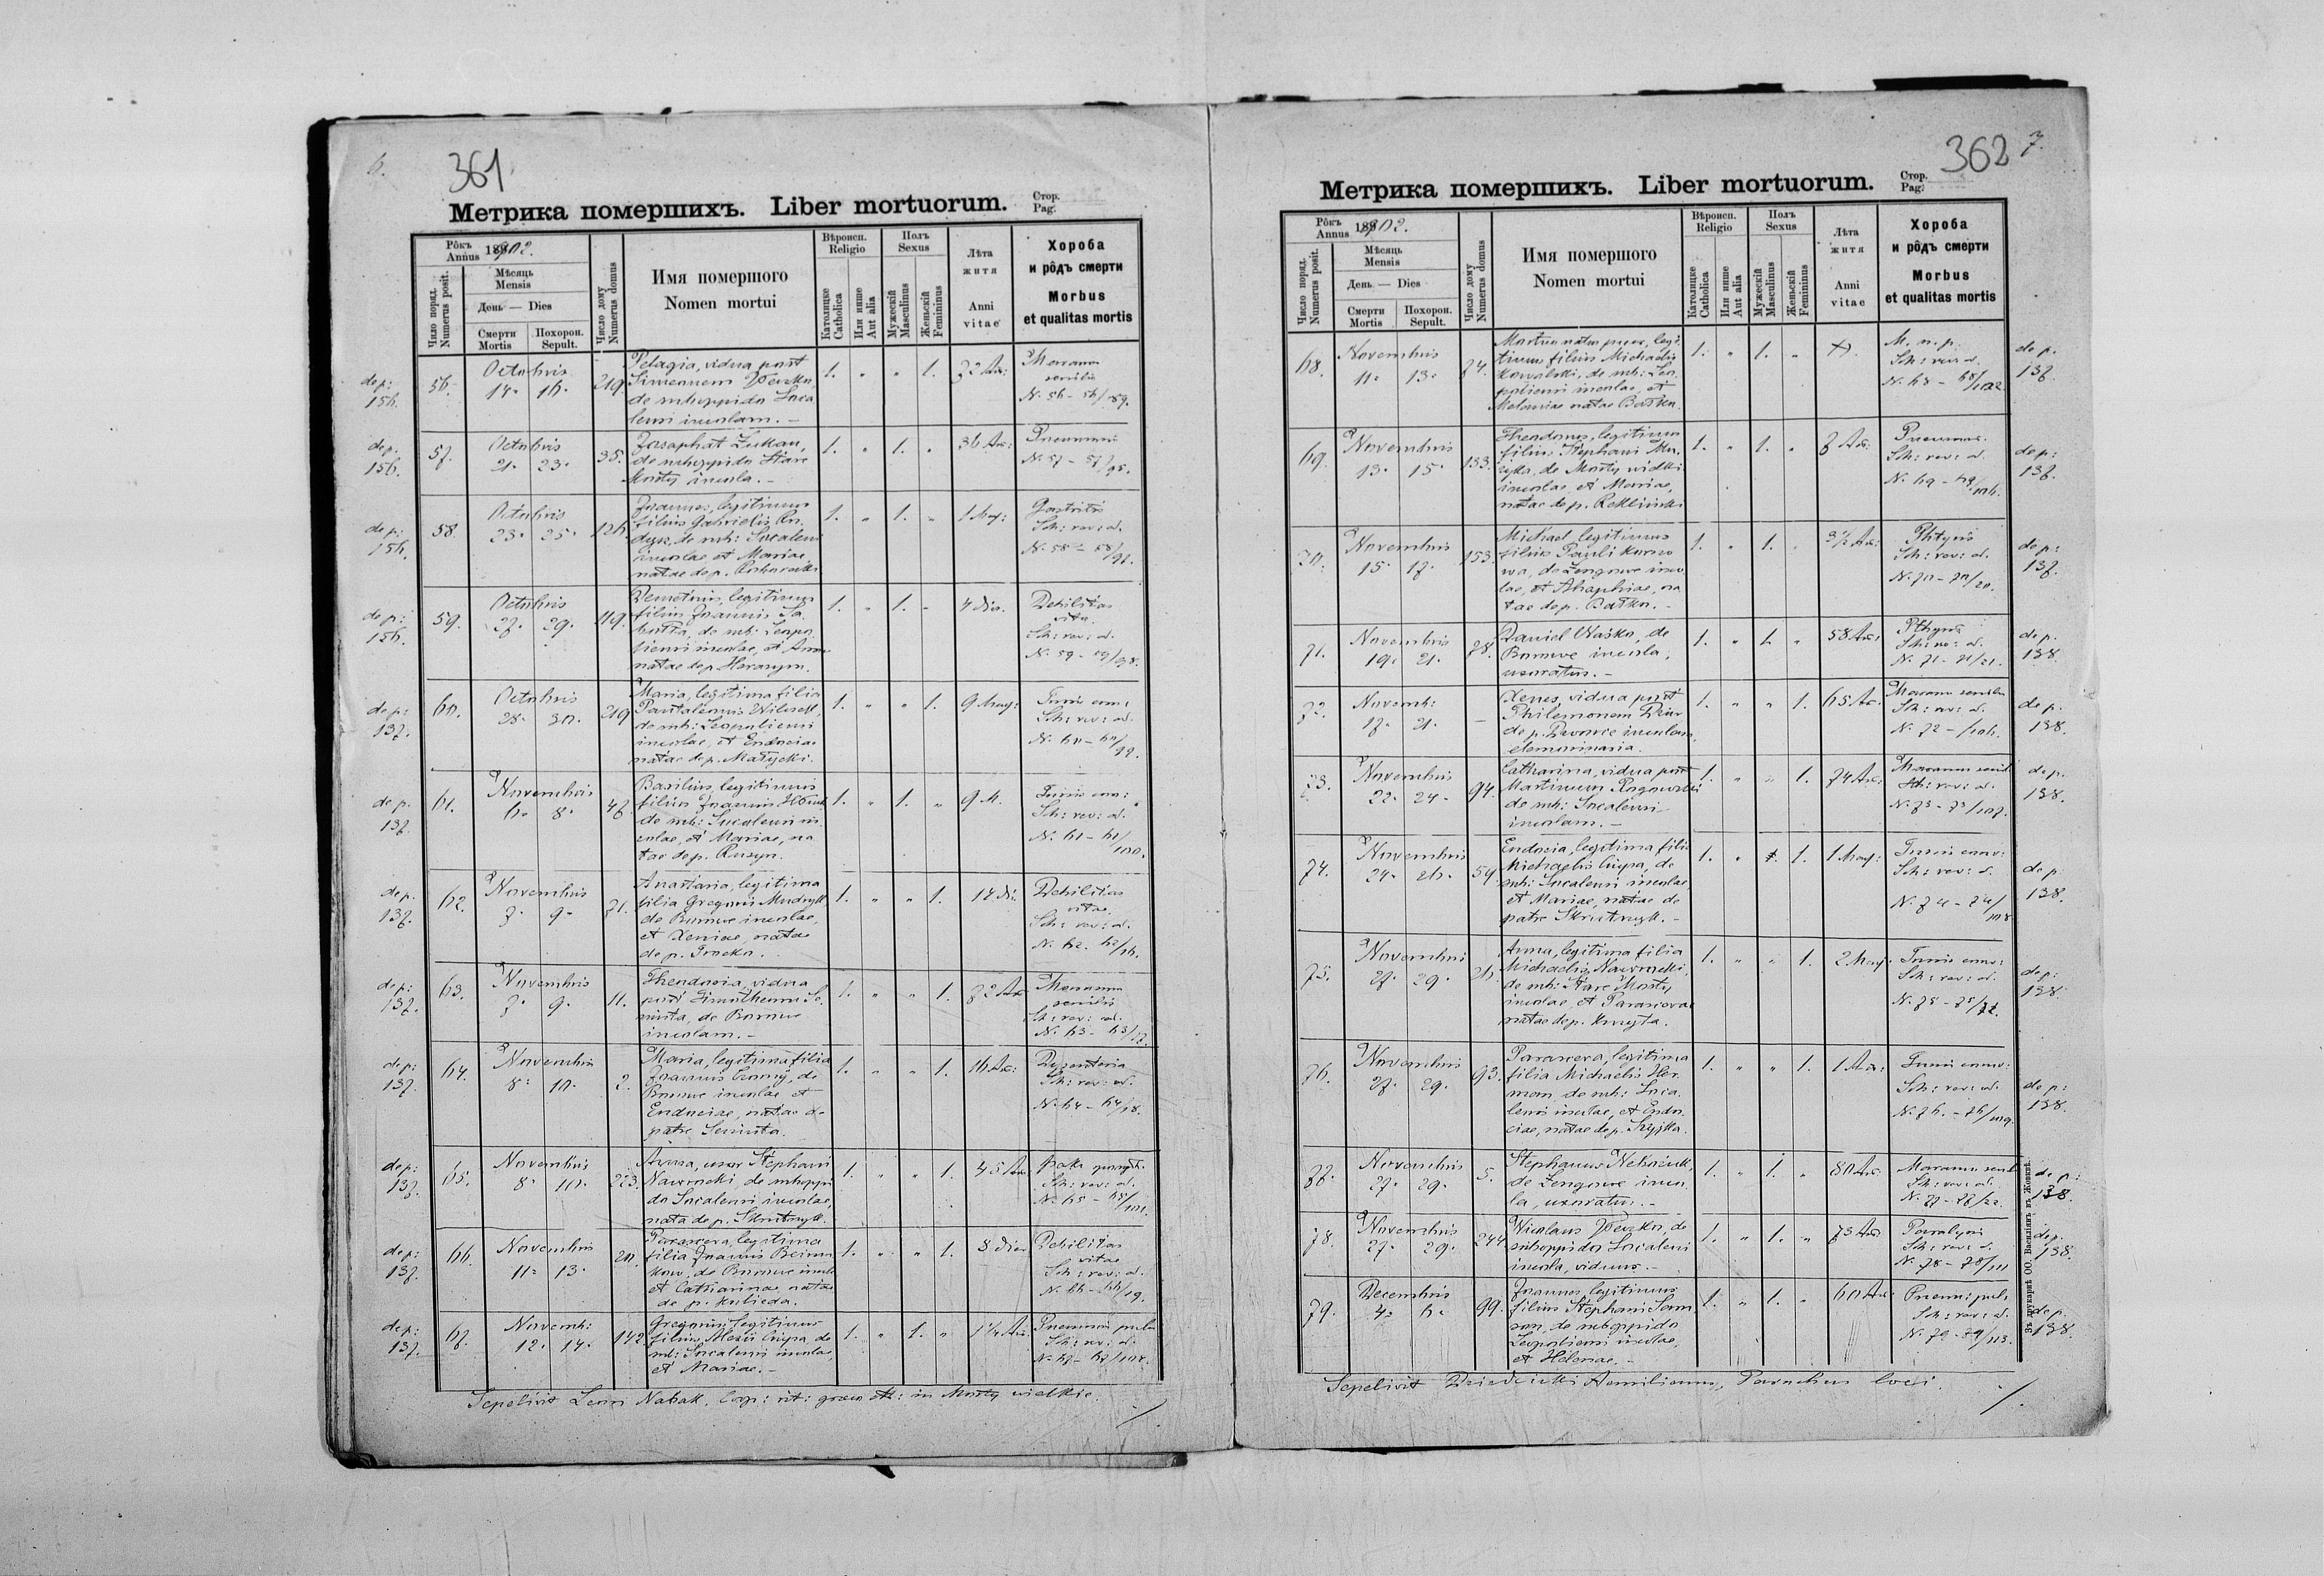 6.
361
Метрика помершихъ. Liber mortuorum.
Стор.
Pag.
Рôкъ
Annus 1902.
Число поряд.
Numerus posit.
Мѣсяць
Mensis
День — Dies
Смерти
Mortis
Похорон.
Sepult.
Число дому
Numerus domus
Имя помершого
Nomen mortui
Вѣроисп.
Religio
Католицке
Catholica
Или инше
Aut alia
Полъ
Sexus
Мужескій
Masculinus
Женьскій
Femininus
Лѣта
житя
Anni
vitae
Хороба
и рôдъ смерти
Morbus
et qualitas mortis
de p: 156.
56. Octobris 14. 16. 219.
Pelagia, vidua post
Simeonem
de suboppido Soca
lensi incolam. –
1. „ „ 1. 72 An:
Marasmus
senilis
N. 56 – 56/89.
de p. 156.
57. Octobris 21. 23. 35.
Josaphat
de suboppido Stare
Mosty incola. –
1. „ 1. „ 36 An:
Pneumonia
N. 57 – 57/95.
de p: 156.
58. Octobris 23. 25. 126.
Joannes, legitimus
filius Gabrielis
de sub: Socalensi
incolae et Mariae,
natae de p.
1. „ 1. „ 1 Mens:
Gastritis
Sch: rev: d.
N. 58 – 58/
de p: 156.
59. Octobris 27. 29. 119.
Demetrius, legitimus
filius Joannis
de sub: Leopo
liensi incolae, et Annae
natae de p. Harasym.
1. „ 1. „ 4 dies.
Debilitas
vitae
Sch: rev: d.
N. 59 – 59/98.
de p: 137.
60. Octobris 28. 30. 219
Maria, legitima filia
Pantaleonis
de sub: Leopoliensi
incolae, et Eudociae
natae de p.
1. „ „ 1. 9 Mens:
Tussis conv:
Sch: rev: d.
N. 60 – 60/99.
de p. 137.
61. Novembris 6. 8. 47.
Basilius, legitimus
filius Joannis
de sub: Socalensi in
colae, et Mariae, na
tae de p. Rusyn.
1. „ 1. „ 9 M.
Tussis conv:
Sch: rev: d.
N. 61 – 61/100.
de p. 137.
62. Novembris 7. 9. 71.
Anastasia, legitima
filia Gregorii Mudryk
de incolae,
et Xeniae, natae
de p.
1. „ „ 1. 14 di.
Debilitas
vitae
Sch: rev: d.
N. 62. 62/16.
de p: 137.
63. Novembris 7. 9. 11.
Theodosia, vidua
post Timotheum Se
niuta, de
incolam. –
1. „ „ 1. 72 An
Marasmus
senilis
Sch: rev: d.
N. 63 – 63/17.
de p: 137.
64. Novembris 8. 10. 2.
Maria, legitima filia
Joannis de
incolae et
Eudociae, natae de
patre Seniuta.
1. „ „ 1. 16 An:
Dysenteria
Sch: rev: d.
N. 64 – 64/18.
de p: 137.
65. Novembris 8. 10. 223.
Anna, uxor Stephani
Nawrocki, de suboppi
do Socalensi incolae,
nata de p. Skrutnyk.
1. „ „ 1. 45 An
Sch: rev: d.
N. 65 – 65/101.
de p: 137.
66. Novembris 11. 13. 20.
Parascera, legitima
filia Joannis
de incolae
et Catharinae, natae
de p.
1. „ „ 1. 8 dies
Debilitas
vitae
Sch: rev: d.
N. 66 – 66/19.
de p: 137.
67. Novemb: 12. 14. 142
Gregorius, legitimus
filius Alexii Ciupa de
sub: Socalensi incolae,
et Mariae. –
1. „ 1. „ 1¼ An
Pneumon pulm
Sch: rev: d.
N. 67 – 67/
Sepelivit Leon Nabak, Coop: rit: graec: in Mosty wielkie.
362
7.
Метрика помершихъ. Liber mortuorum.
Стор.
Pag.
Рôкъ
Annus 1902.
Число поряд.
Numerus posit.
Мѣсяць
Mensis
День — Dies
Смерти
Mortis
Похорон.
Sepult.
Число дому
Numerus domus
Имя помершого
Nomen mortui
Вѣроисп.
Religio
Католицке
Catholica
Или инше
Aut alia
Полъ
Sexus
Мужескій
Masculinus
Женьскій
Femininus
Лѣта
житя
Anni
vitae
Хороба
и рôдъ смерти
Morbus
et qualitas mortis
68. Novembris 11. 13. 74.
Mortuus natus puer, legi
timus filius Michaelis
Kowalski, de sub: Leo
poliensi incolae, et
Melaniae natae Baśko.
1. „ 1. „
M. n. p.
Sch: rev: d.
N. 68 – 68/102
de p. 137.
69. Novembris 13. 15. 133.
Theodorus, legitimus
filius Stephani
de Mosty wielkie
incolae, et Mariae,
natae de p. Rekliński
1. „ 1. „ 7 An.
Pneumon.
Sch: rev: d.
N. 69 – 69/
de p: 137.
70. Novembris 15. 17. 153.
Michael legitimus
filius Pauli
de inco
lae, et Ahaphiae, na
tae de p. Baśko. –
1. „ 1. „ 3½ An:
Phtysis
Sch: rev: d.
N. 70 – 70/20.
de p: 137.
71. Novembris 19. 21. 78.
Daniel Waśko, de
incola,
uxoratus. –
1. „ 1. „ 58 An:
Sch: rev: d.
N. 71 – 71/21.
de p. 138.
72. Novemb: 17. 21. –
Xenes, vidua post
Philemonem
de p. incolam,
elemosinaria.
1. „ „ 1. 65 An.
Marasm senilis
Sch: rev: d.
N. 72 –
de p. 138.
73. Novembris 22. 24. 94.
Catharina, vidua post
Martinum Rogowski
de sub: Socalensi
incolam. –
1. „ „ 1. 74 An:
Marasm senil.
Sch: rev: d.
N. 73 – 73/107.
de p. 138.
74. Novembris 24. 26. 59
Eudocia, legitima filia
Michaelis Ciupa, de
sub: Socalensi incolae,
et Mariae, natae de
patre Skrutnyk. –
1. „ 1. 1 Mens:
Tussis conv:
Sch: rev: d.
N. 74 – 74/108
de p. 138.
75. Novembris 27. 29. 26.
Anna, legitima filia
Michaelis Nawrocki,
de sub: Stare Mosty
incolae, et Parascevae
natae de p.
1. „ „ 1. 2 Mens.
Tussis conv:
Sch: rev: d.
N. 75 – 75/72.
de p: 138.
76. Novembris 27. 29. 93.
Parascera, legitima
filia Michaelis Her
man de sub: Soca
lensi incolae, et Eudo
ciae, natae de p.
1. „ „ 1. 1 An:
Tussis conv:
Sch: rev: d.
N. 76. – 76/109.
de p: 138.
77. Novembris 27. 29. 5.
Stephanus
de inco
la, uxoratus. –
1. „ 1. „ 80 An.
Marasm senil
Sch: rev: d.
N. 77 – 77/22.
de p: 138.
78. Novembris 27. 29. 244
Nicolaus de
suboppido Socalensi
incola, viduus. –
1. „ 1. „ 73 An
Paralysis
Sch: rev: d.
N. 78 – 78/111
de p. 138.
79. Decembris 4. 6. 99.
Joannes, legitimus
filius Stephani
de suboppido
Leopoliensi incolae,
et Helenae. –
1. „ 1. „ 60 An:
Pneum: pulm
Sch: rev: d.
N. 79 – 79/113.
de p. 138.
Зъ друкарнѣ ОО. Василіянъ въ Жовквѣ.
Sepelivit Dziedzicki Aemilianus, Parochus loci.